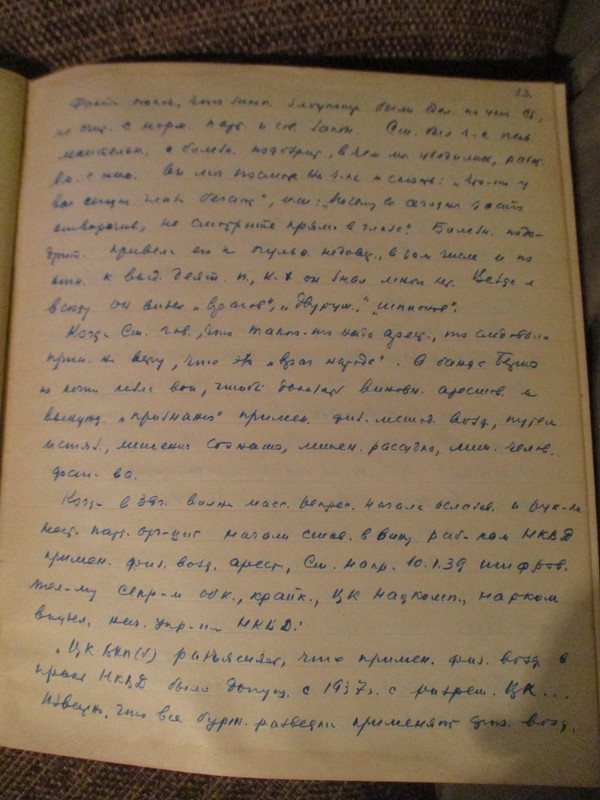 33
Факты показ., что
с норм. парт. и сов. закон. Ст. был ч-к очень
мнительн. с болезн. подозрит., в чем мы убедились, работ.
с ним. Он мог посмотр. на ч-ка и сказать: „что-то у
вас сегодня глаза бегают", или: „Почему вы сегодня часто
отворачив., не смотрите прямо в глаза? Болезн. подо-
зрит. привела его к огульн. недовер., в том числе и по
отн. к выд. деят. п., к-х он знал много лет. Везде и
всюду он видел „врагов", „двурушн.", „шпионов".
Когда Ст. гов., что такого-то надо арест., то следовало
прин. на веру, что это „враг народа". А банда Берия
из кожи лезла вон, чтобы доказать виновн. арестов. и
вынужд. „признания" примен. физ. метод. возд., путем
истяз., лишения сознания, лишен. рассудка, лиш. челов.
дост-ва.
Когда в 39г. волна масс. репрес. начала ослабев. и рук-ли
мест. парт. орг-ций начали ставить в вину раб-кам НКВД
примен. физ. возд. к арест., Ст. напр. 10.1.39 шифров.
тел-му секр-м обк., крайк., ЦК нацкомп., нарком
внудел, нач. упр-ий НКВД:
„ЦК ВКП(б) разъясняет, что примен. физ. возд. в
практ. НКВД было допущ. с 1937г. с разреш. ЦК...
Известно, что все бурж. разведки применяют физ. возд.